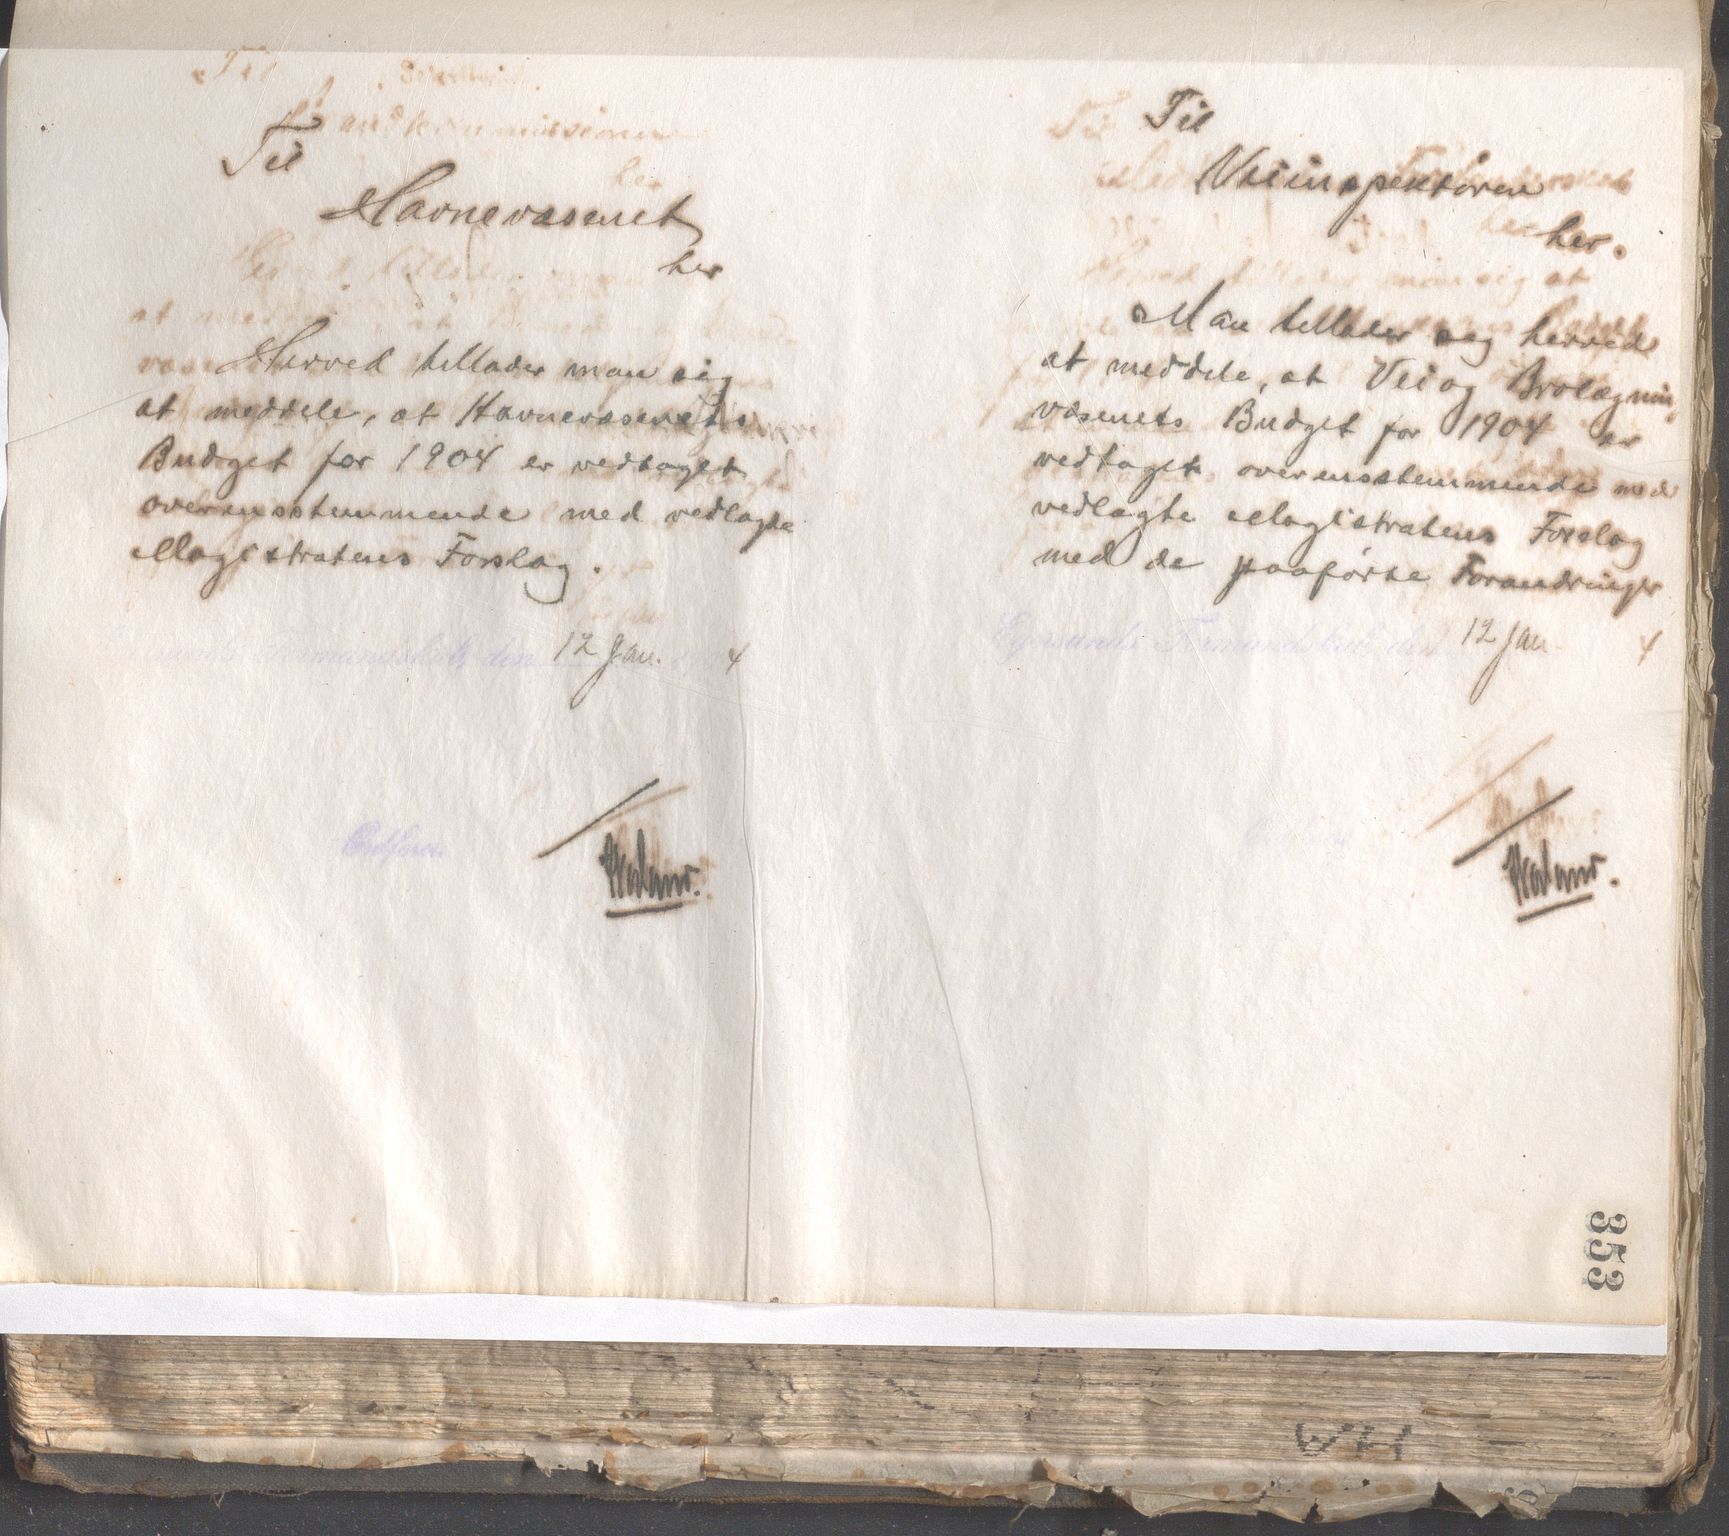 Til
Havnevæsenet
her
Herved tillader man sig
at meddele, at Havnevæsenets
Budget for 1904 er vedtaget
overensstemmende med vedlagte
Magistratens Forslag.
Formandskab, den 12 Jan. 4
Ordfører
Til
Veiinspektøren
her.
Man tillader sig herved
at meddele, at Vei og Brolægnin
væsenets Budget for 1904 er
vedtaget overensstemmende med
vedlagte Magistratens Forslag
med de paaførte Forandringer
Egersunds Formandskab, den 12 Jan. 4
353